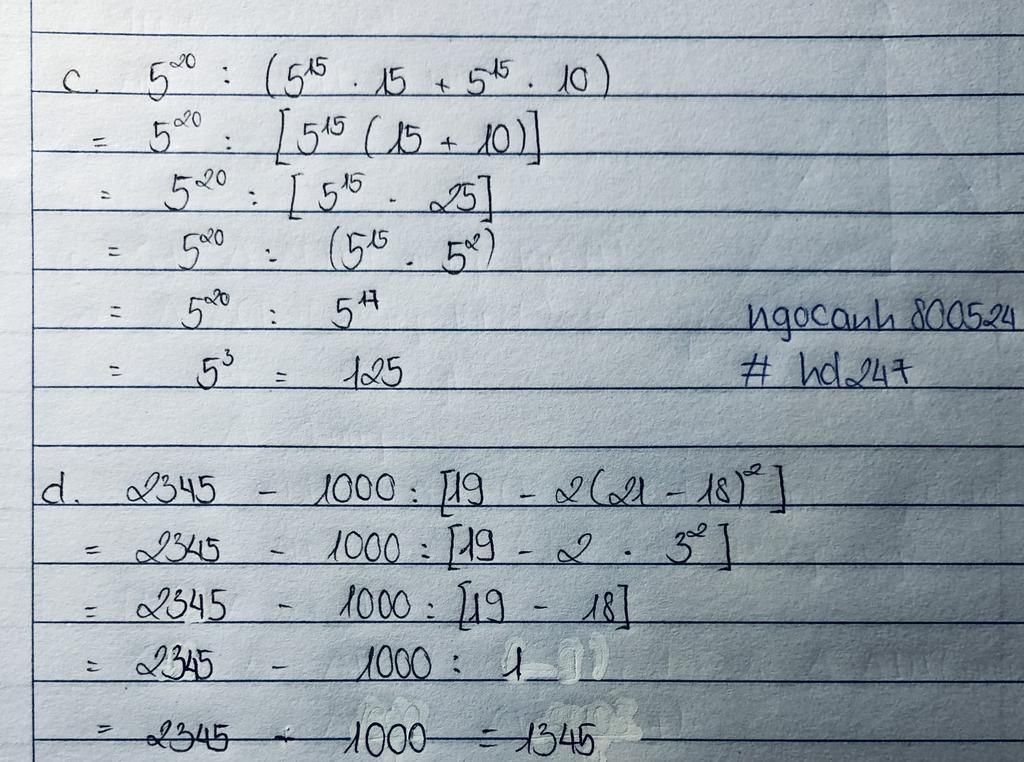 c. 5²⁰ : (5¹⁵ . 15 + 5¹⁵ . 10)
= 5²⁰ : [5¹⁵ (15 + 10)]
= 5²⁰ : [5¹⁵ . 25]
= 5²⁰ : (5¹⁵ . 5²)
= 5²⁰ : 5¹⁷
ngocanh 800524
= 5³ = 125
# hd247
d. 2345 - 1000 : [19 - 2(21 - 18)²]
= 2345 - 1000 : [19 - 2 . 3²]
= 2345 - 1000 : [19 - 18]
= 2345 - 1000 : 1
= 2345 - 1000 = 1345